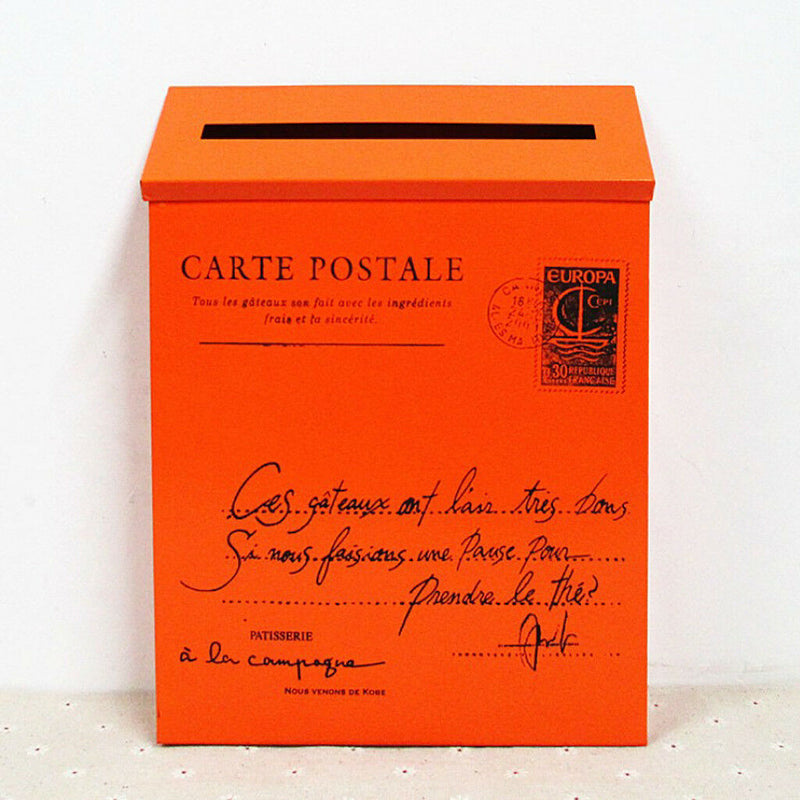 CARTE POSTALE
Tous les gâteaux son fait avec les ingrédients
frais et ta sincérité.
EUROPA
CEPT
30 REPUBLIQUE
FRANÇAISE
Ces gâteaux ont l'air très bons
Si nous faisions une Pause Pour
Prendre le thé?
PATISSERIE
à la campagne
NOUS VENONS DE KOBE